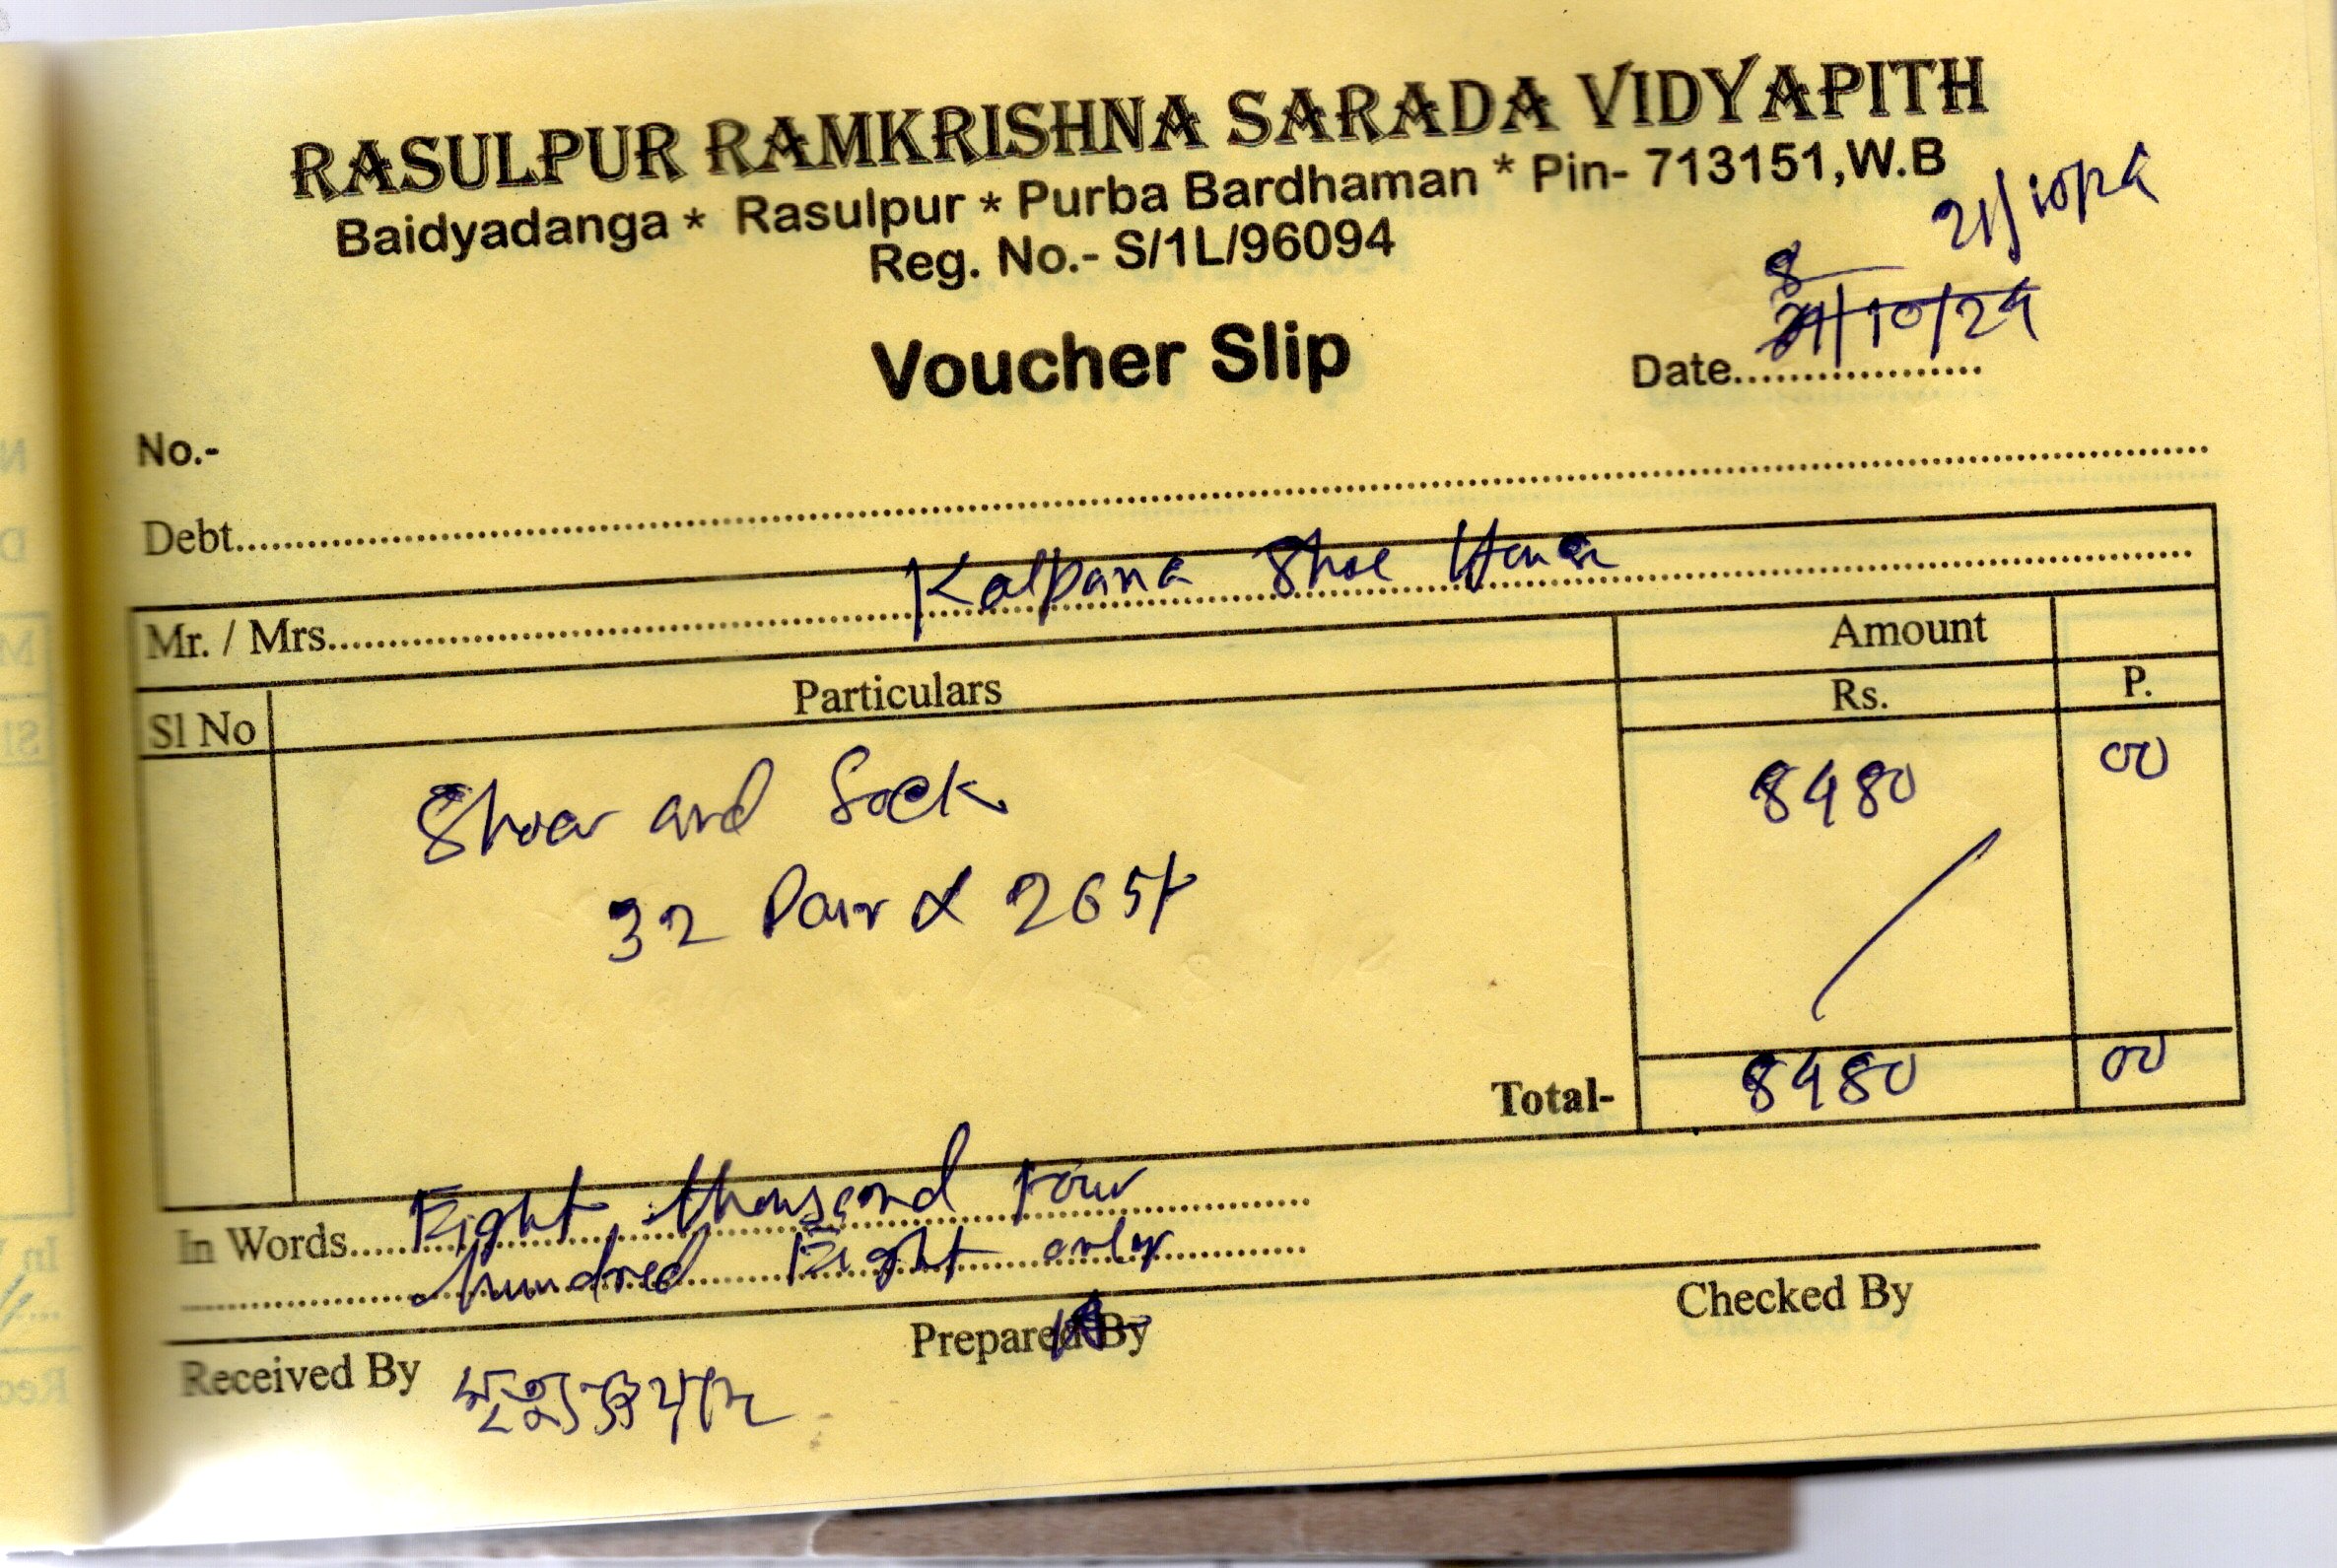 RASULPUR RAMKRISHNA SARADA VIDYAPITH
Baidyadanga * Rasulpur * Purba Bardhaman * Pin- 713151,W.B
Reg. No.- S/1L/96094
21/10/24
Voucher Slip
Date.................... /10/24
No.-
Debt....................
Mr. / Mrs.................... Kalpana Shoe House
Sl No Particulars Amount
Rs. P.
Shoes and Sock 8480 00
32 Pair x 265/-
Total- 8480 00
In Words..... Eight thousand Four
hundred Eight only
Received By Prepared By Checked By